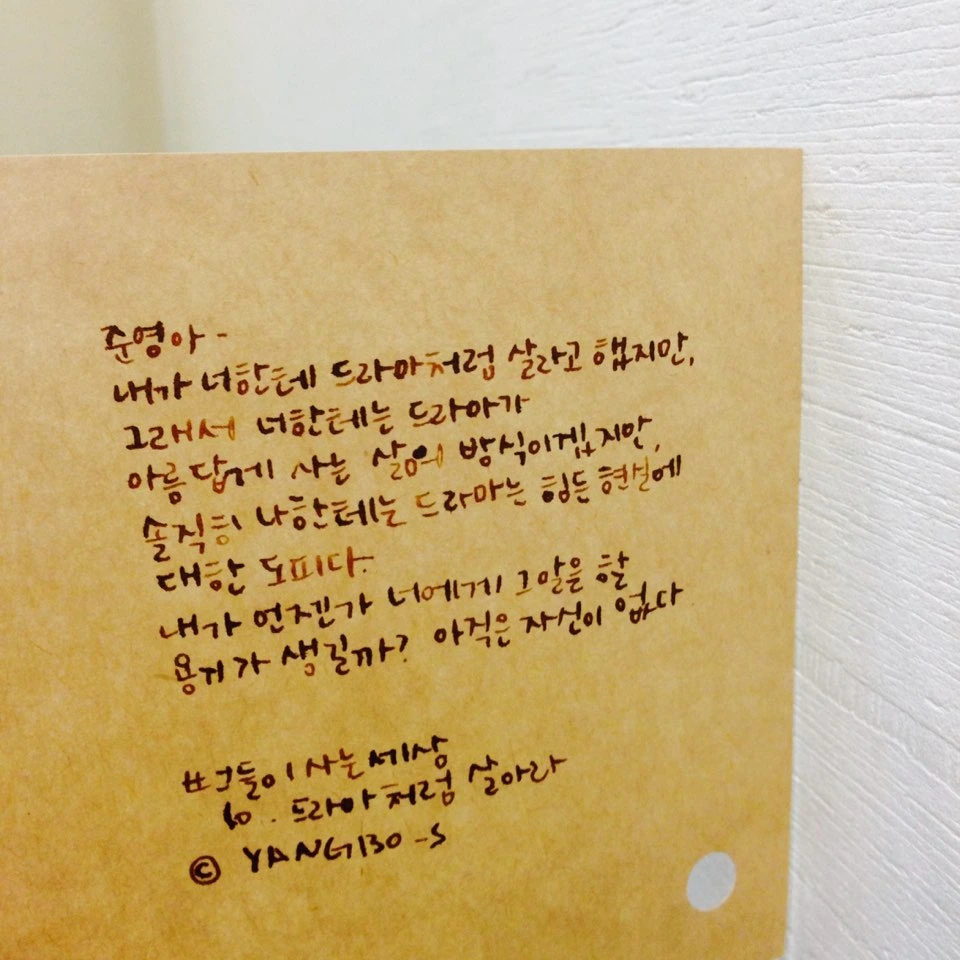 준영아 -
내가 너한테 드라마처럼 살라고 했지만,
그래서 너한테는 드라마가
아름답게 사는 삶의 방식이겠지만,
솔직히 나한테는 드라마는 힘든 현실에
대한 도피다.
내가 언젠가 너에게 그말을 할
용기가 생길까? 아직은 자신이 없다
그들이 사는 세상
10. 드라마처럼 살아라
© YANGBO-S